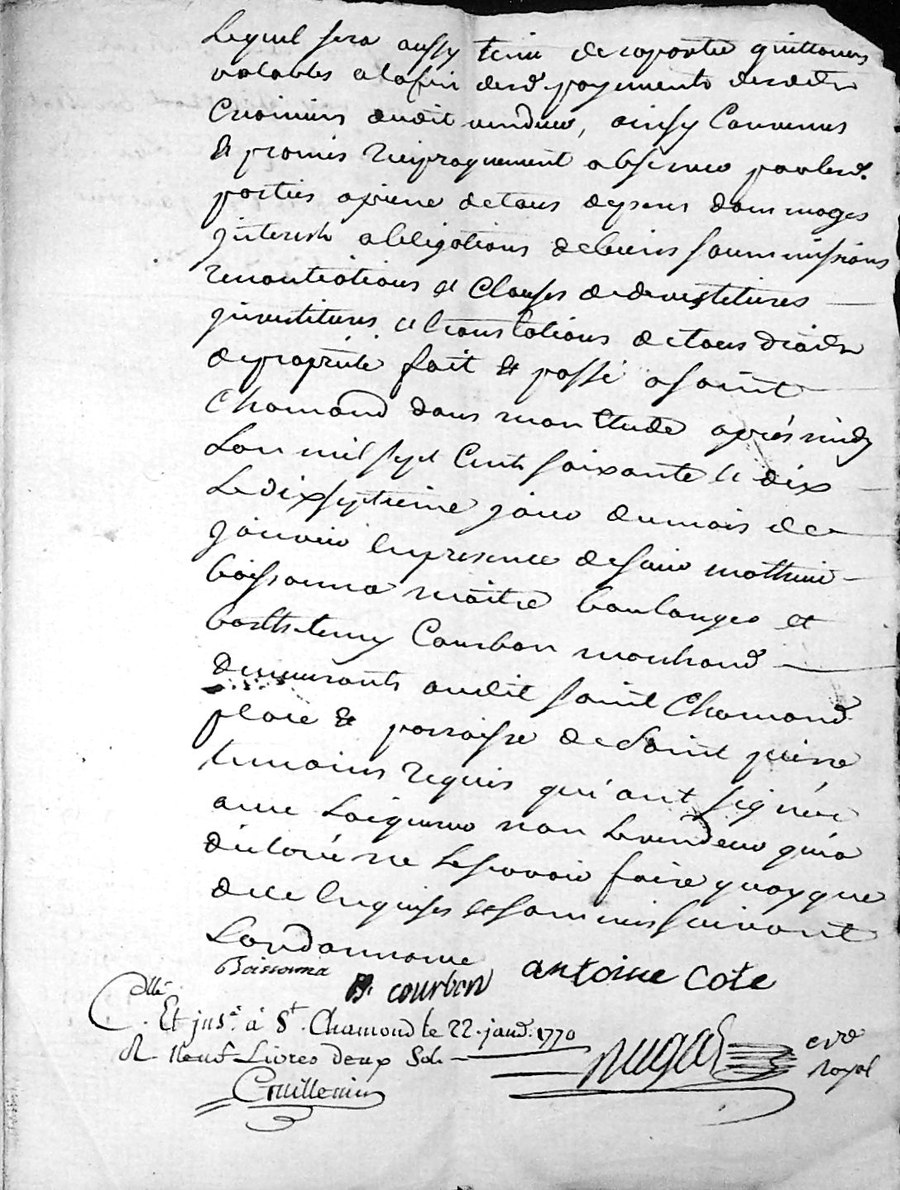 Lequel sera aussy tenu de raporter quittances
valables a la fin desd. payements desdits
Creanciers dudit vendeur, ainsy Convenus
& promis reciproquement observer par lesd.
parties a peine de tous depens dommages
interests obligations de biens soummissions
renontiations et Clauses de devestitures
jnvestitures et translations de tous droits
de propriété fait & passé a saint
Chamond dans mon Etude après midy
Lan mil sept Cents soixante et dix
Le dix septieme jour du mois de
janvier En presence de sieur mathieu
boissonna maitre boulanger et
barthelemy Courbon marchand
demeurants audit saint Chamond
place & parroisse de Saint pierre
temoins requis qui ont signée
avec Lacquereur non Le vendeur qui a
déclaré ne Le scavoir faire quoyque
de ce Enquises et sommé suivant
Lordonnance
Boissonna
B. courbon antoine cote
Collé.
Et jnsé. à St. Chamond le 22. janv. 1770
R neuf Livres deux Sols
Guillemin
Dugas
royal